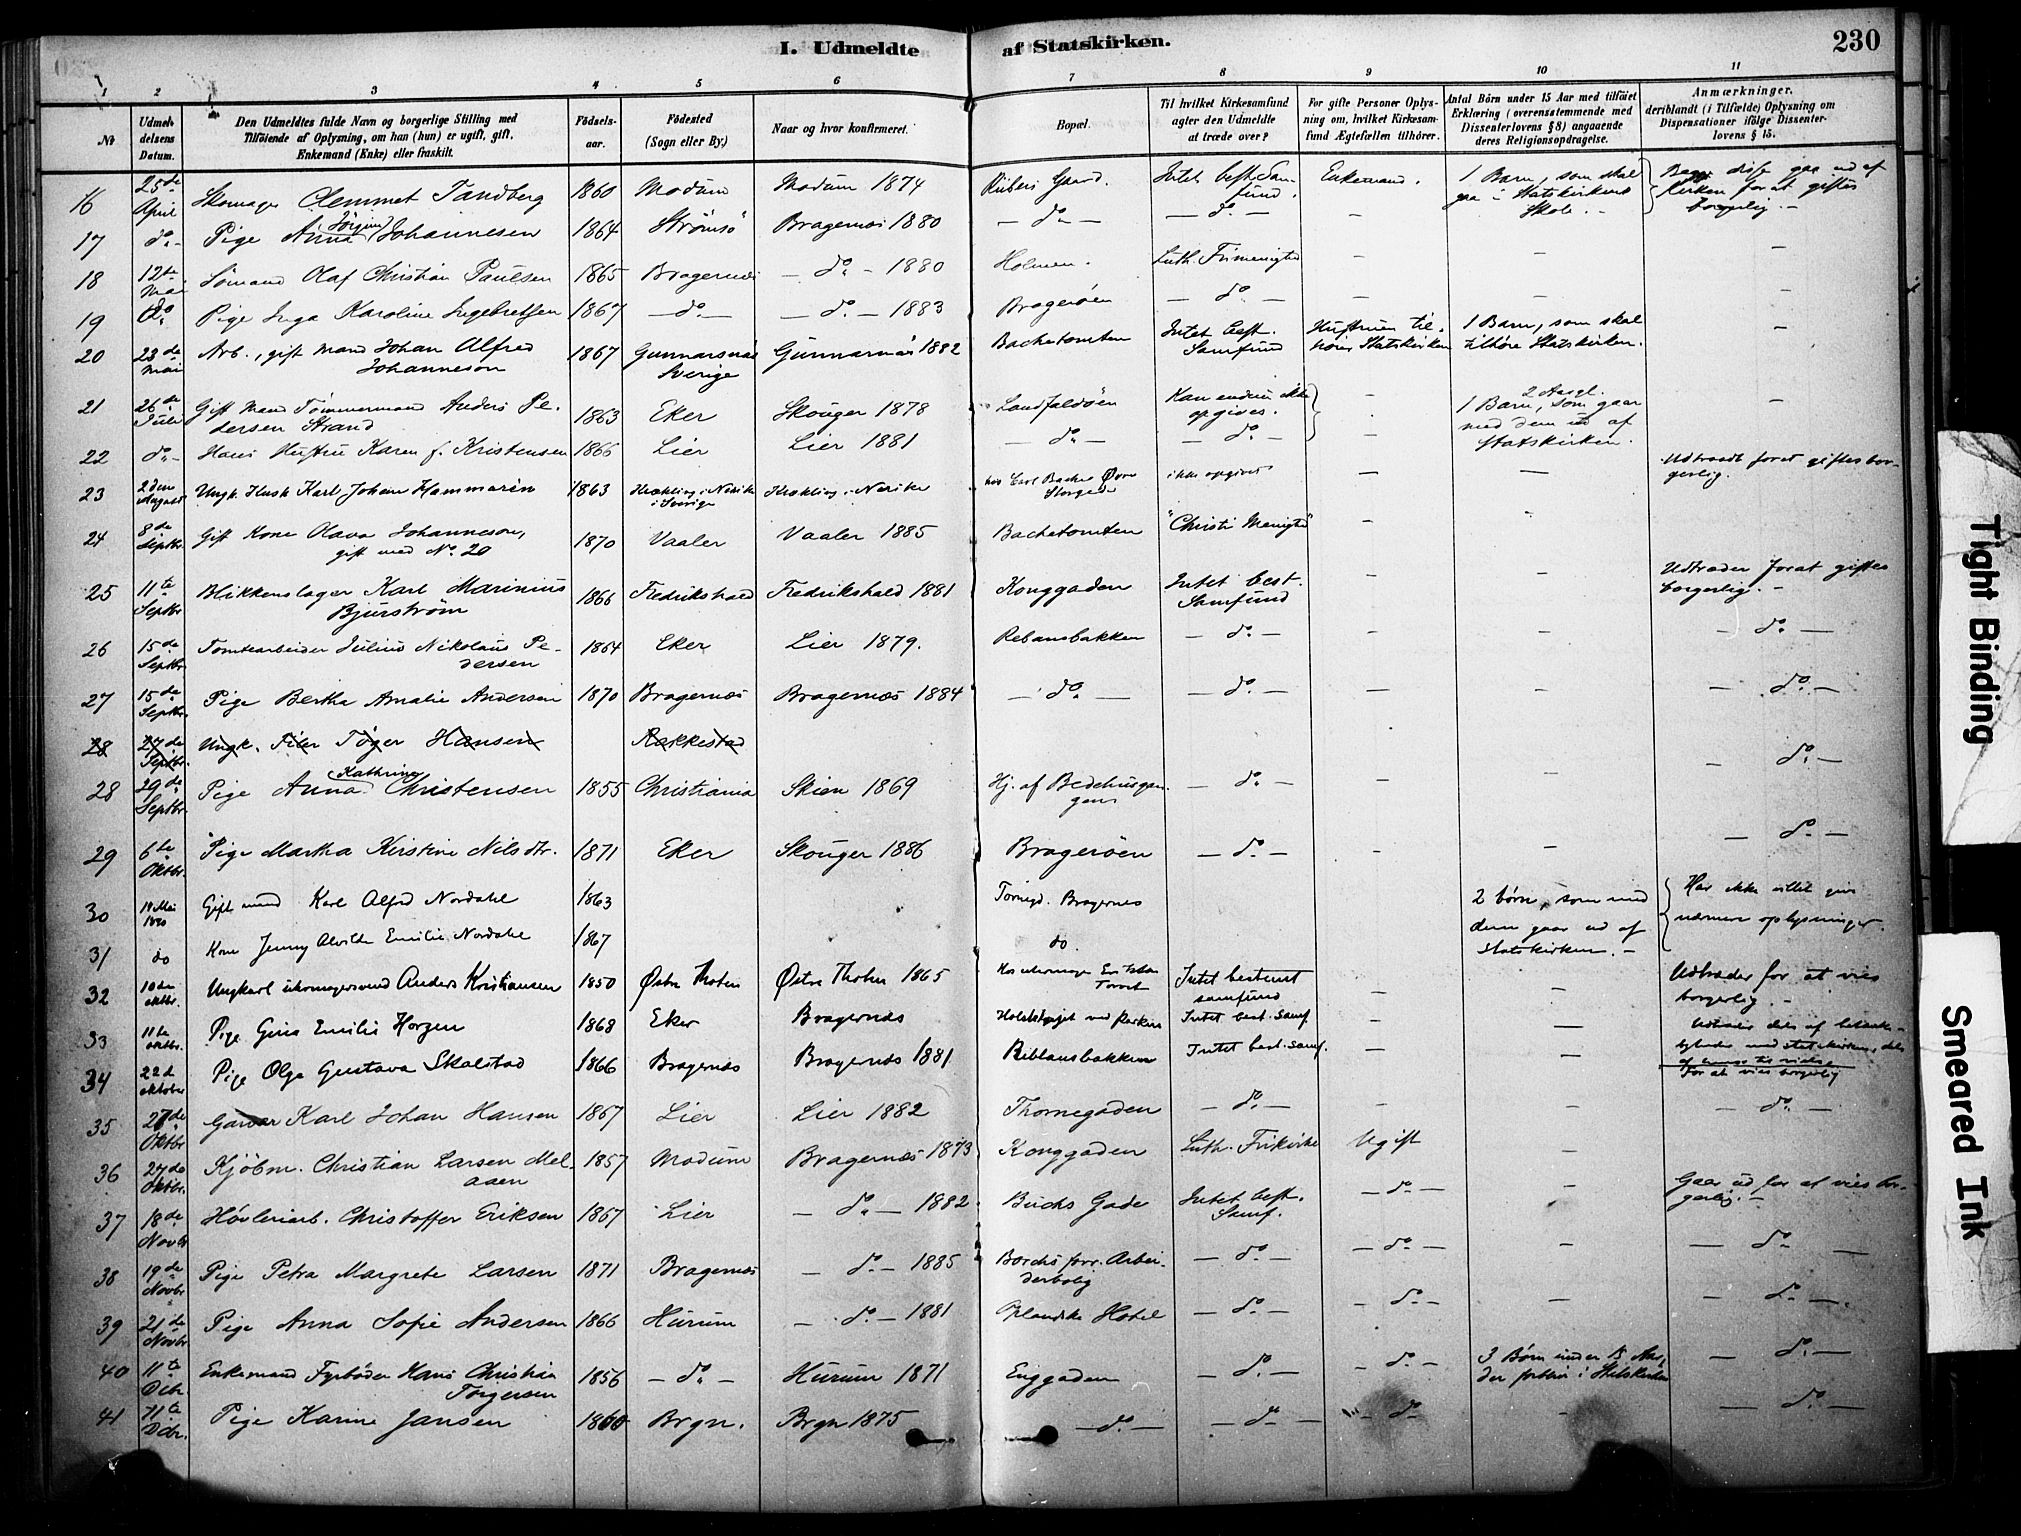 I. Udmeldte af Statskirken.
230
1 2 3 4 5 6 7 8 9 10 11
№
Udmeldelsens Datum.
Den Udmeldtes fulde Navn og borgerlige Stilling med Tilföiende af Oplysning, om han (hun) er ugift, gift, Enkemand (Enke) eller fraskilt.
Födselsaar.
Födested (Sogn eller By.)
Naar og hvor konfirmeret.
Bopæl.
Til hvilket Kirkesamfund agter den Udmeldte at træde over?
For gifte Personer Oplysning om, hvilket Kirkesamfund Ægtefællen tilhörer.
Antal Börn under 15 Aar med tilföiet Erklæring (overensstemmende med Dissenterlovens § 8) angaaende deres Religionsopdragelse.
Anmærkninger, deriblandt (i Tilfælde) Oplysning om Dispensationer ifölge Dissenterlovens § 15.
16 25de April Skomager Clemmet Tandberg 1860 Modum Modum 1874 Gaard. Intet best. Samfund. Enkemand. 1 Barn, som skal gaa i Statskirkens Skole. - Begge disse gaa ud af Kirken for at giftes borgerlig. -
17 do - Pige Anna Jørgine Johannesen 1864 Strömsö Bragernæs 1880 - do - - do - -
18 12te Mai Sömand Olaf Christian Paulsen 1865 Bragernæs - do - 1880 Holmen. Luth. Frimenighed - - -
19 do Pige Inga Karoline Ingebretsen 1867 - do - - do - 1883 Bragerøen - do - - - -
20 23de Mai Arb., gift Mand Johan Alfred Johanneson 1867 Gunnarsnäs Sverige Gunnarnäs 1882 Bachetomten Intet best. Samfund Hustruen tilhører Statskirken 1 Barn, som skal tilhöre Statskirken. -
21 26de Juli Gift Mand Tömmermand Anders Pedersen Strand 1863 Eker Skouger 1878 Landfaldöen Kan endnu ikke opgives. - 2 Aargl. 1 Barn, som gaar med dem ud af Statskirken. -
22 do - Hans Hustru Karen f. Kristensen 1866 Lier Lier 1881 - do - - do - -
23 2den August Ungk. Kusk Karl Johan Hammarén 1863 Kræklinge i Nerike i Sverige Kræklinge i Nerike hos Carl Bache Øvre Storgade ikke opgivet - - Udtraadt forat giftes borgerlig.
24 8de Septbr Gift Kone Olava Johanneson, gift med No. 20 1870 Vaaler Vaaler 1885 Bachetomten "Christi Menighed" - -
25 11te Septbr Blikkenslager Karl Marinius Bjurström 1866 Fredrikshald Fredrikshald 1881 Konggaden Intet best. Samfund - - Udtræder forat giftes borgerlig. -
26 15de Septbr Tomtearbeider Julius Nikolaus Pedersen 1864 Eker Lier 1879. Rebansbakken - do - - - - do -
27 15de Septbr. Pige Bertha Amalie Andersen 1870 Bragernæs Bragernæs 1884 - do - - do - - - - do -
28 27de Septbr. Ungk. Töger Hansen Rakkestad
28 29de Septbr. Pige Anna Kathrine Christensen 1855 Christiania Skien 1869 Hj. af Bedehusgangen - do - - - - do -
29 6te Oktbr. Pige Martha Kirstine Nilsdtr. 1871 Eker Skouger 1886 Bragerøen - do - - - - do -
30 14 Mai 1890 Gift mand Karl Alfred Nordahl 1863 Tornegd. Bragernes 2 børn, som med dem gaar ud af statskirken. - Har ikke villet give nærmere oplysninger.
31 do Kone Jenny Alvilde Emilie Nordahl 1867 do.
32 10de oktbr. Ungkarl skomagersvend Anders Kristiansen 1850 Østre Thoten Østre Thoten 1865 Intet bestemt samfund - - Udtræder for at vies borgerlig. -
33 11te oktbr. Pige Gina Emilie Horgen 1868 Eker Bragernæs ved Parken Intet best. samf. - -
34 22d oktober Pige Olga Gustava Skalstad 1866 Bragernæs Bragernæs 1881 Reblansbakken Intet best. samf. - - For at vies borgerlig
35 27de Oktbr Garver Karl Johan Hansen 1867 Lier Lier 1882 Thornegaden - do - - - - do -
36 27de Oktbr. Kjöbm. Christian Larsen Melaaen 1857 Modum Bragernæs 1873 Konggaden Luth. Frikirke Ugift -
37 18de Novbr Hövleriarb. Christoffer Eriksen 1867 Lier - do - 1882 Buchs Gade Intet best. Samf. - do - - Gaar ud for at vies borgerlig. -
38 19de Novbr Pige Petra Margrete Larsen 1871 Bragernæs - do - 1885 Borchs forr. Arbeiderbolig - do - - do - - - do -
39 21de Novbr Pige Anna Sofie Andersen 1866 Hurum - do - 1881 Oplandske Hotel - do - - do - - - do -
40 11te Dcbr. Enkemand Fyrböder Hans Christian Torgersen 1856 - do - Hurum 1871 Enggaden - do - - do - 3 Børn under 15 Aar, der forblir i Statskirken - do -
41 11te Dcbr. Pige Karine Jansen 1860 Brgn. Brgn 1875 - do - - do - - do - - - do -
Tight Binding
Smeared Ink